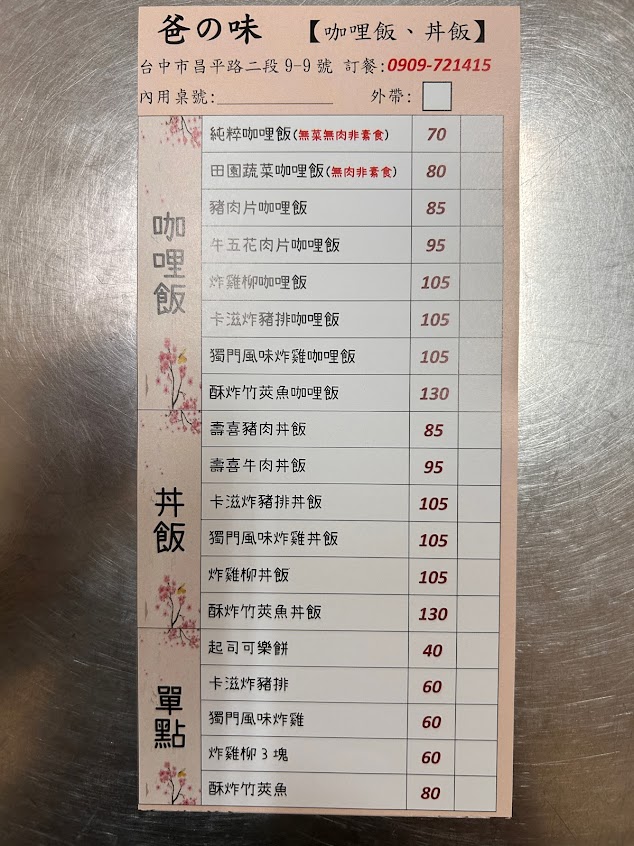 爸の味 【咖哩飯、丼飯】
台中市昌平路二段9-9號 訂餐:0909-721415
內用桌號:____________ 外帶:
咖哩飯
純粹咖哩飯(無菜無肉非素食) 70
田園蔬菜咖哩飯(無肉非素食) 80
豬肉片咖哩飯 85
牛五花肉片咖哩飯 95
炸雞柳咖哩飯 105
卡滋炸豬排咖哩飯 105
獨門風味炸雞咖哩飯 105
酥炸竹莢魚咖哩飯 130
丼飯
壽喜豬肉丼飯 85
壽喜牛肉丼飯 95
卡滋炸豬排丼飯 105
獨門風味炸雞丼飯 105
炸雞柳丼飯 105
酥炸竹莢魚丼飯 130
單點
起司可樂餅 40
卡滋炸豬排 60
獨門風味炸雞 60
炸雞柳3塊 60
酥炸竹莢魚 80